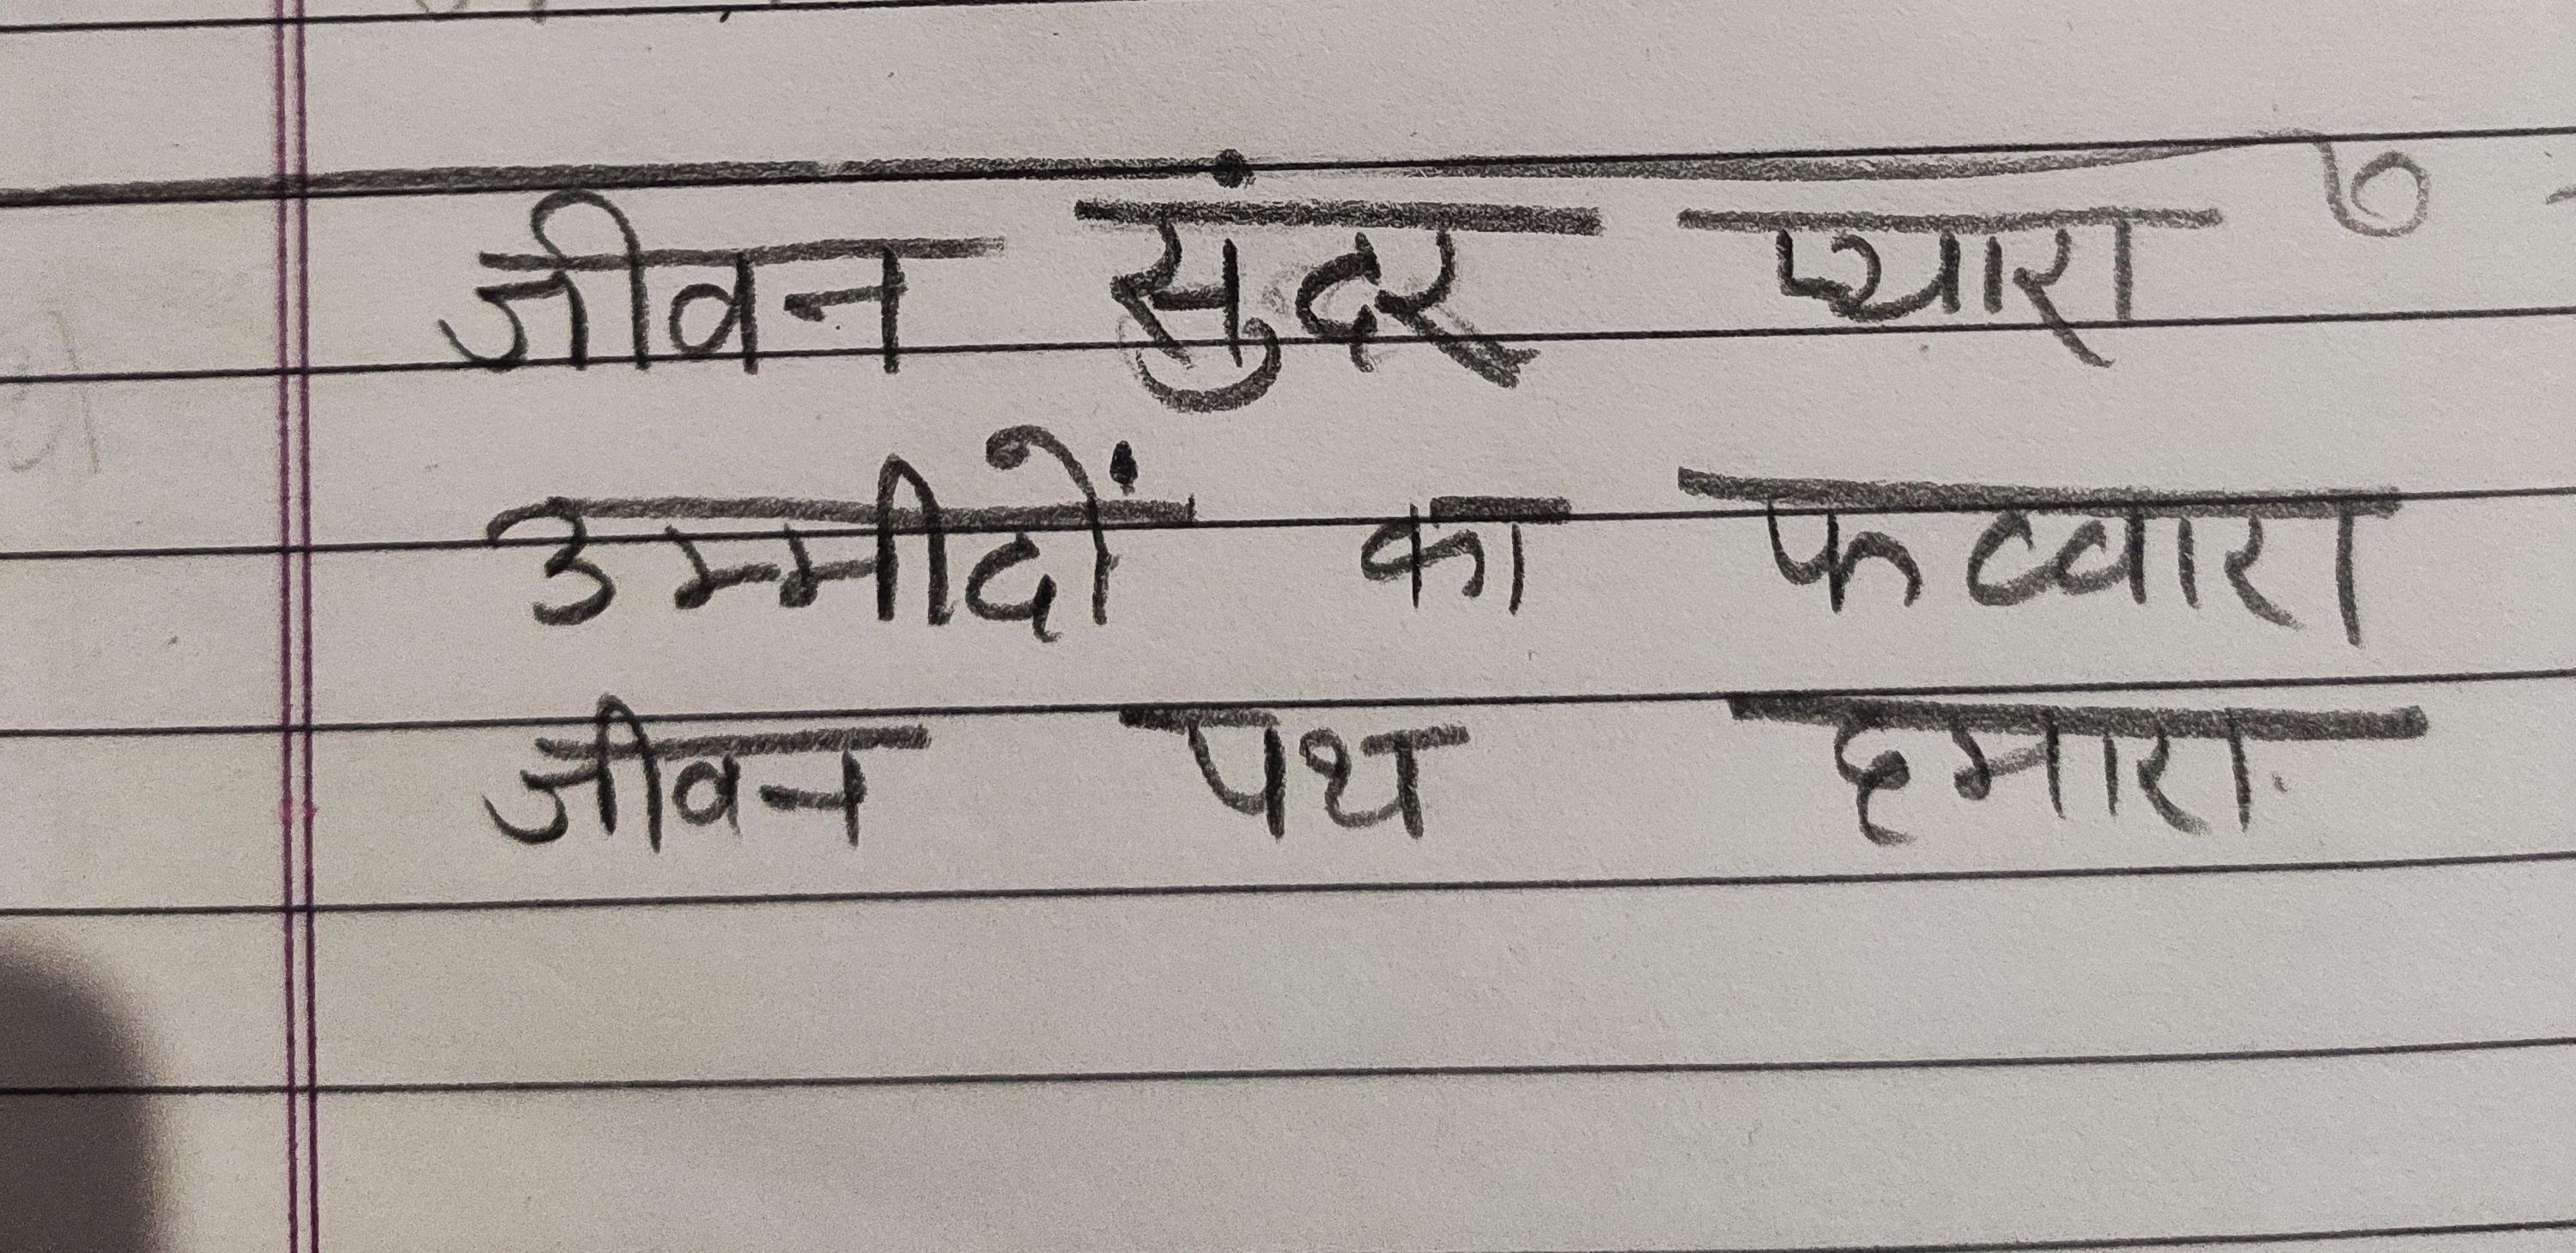 जीवन सुंदर प्यारा
उम्मीदों का फव्वारा
जीवन पथ हमारा